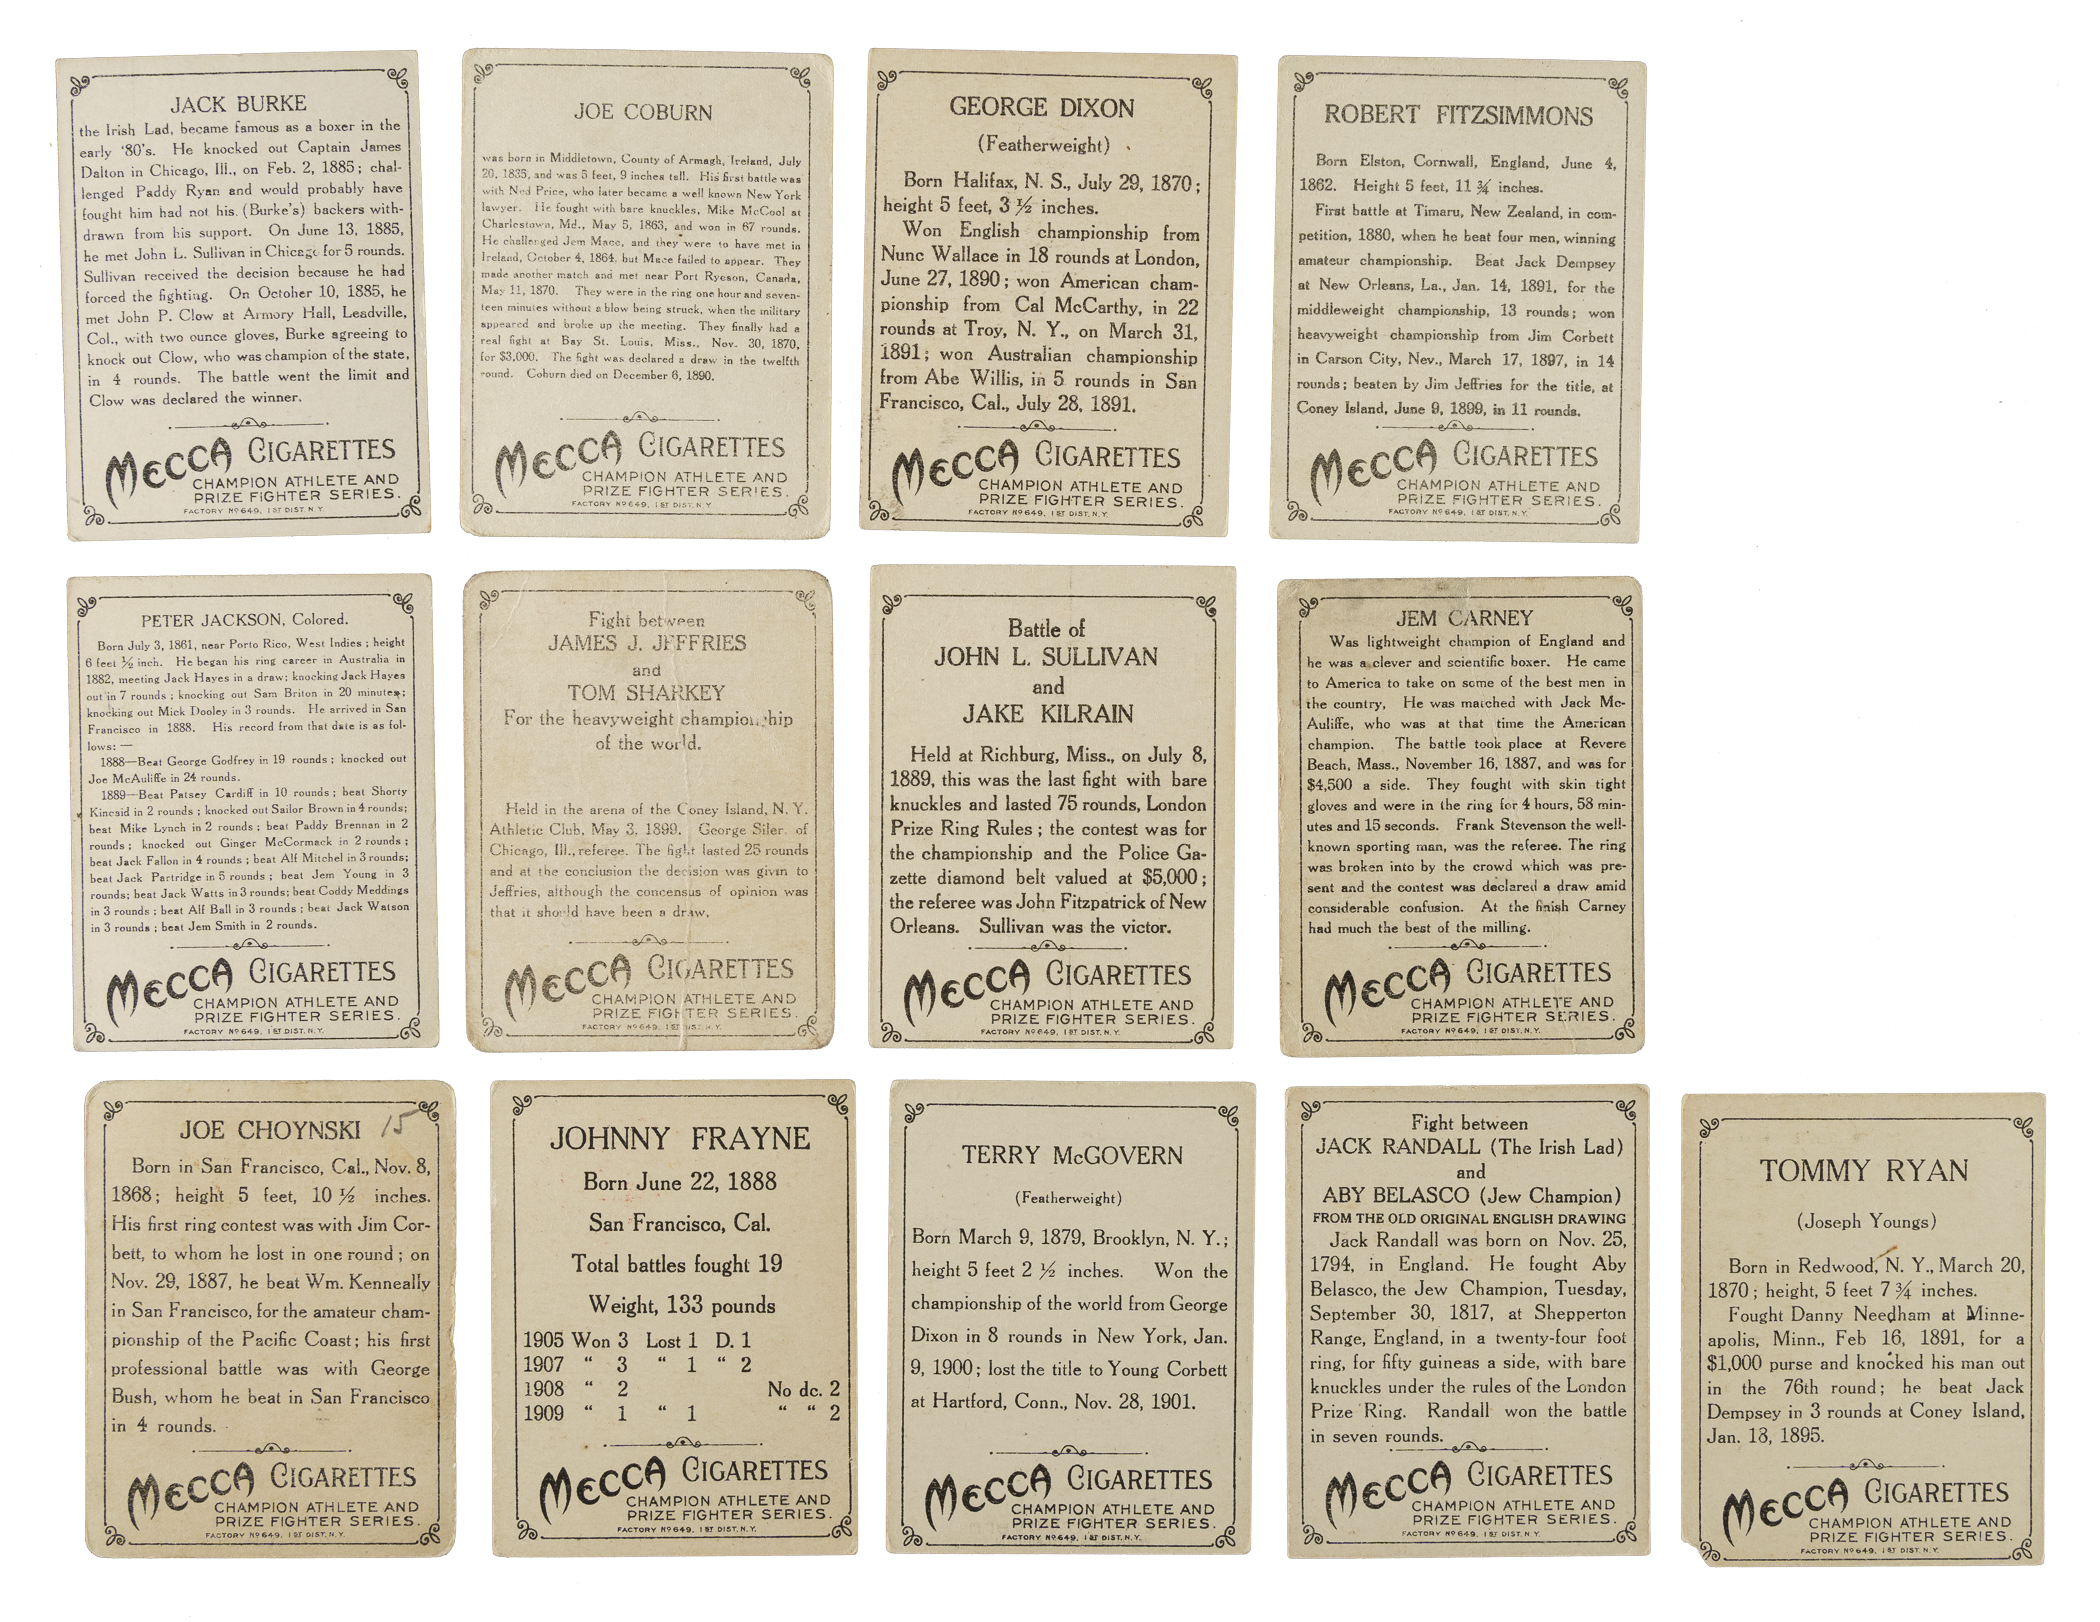 JACK BURKE
the Irish Lad, became famous as a boxer in the
early '80's. He knocked out Captain James
Dalton in Chicago, Ill., on Feb. 2, 1885; chal-
lenged Paddy Ryan and would probably have
fought him had not his (Burke's) backers with-
drawn from his support. On June 13, 1885,
he met John L. Sullivan in Chicago for 5 rounds.
Sullivan received the decision because he had
forced the fighting. On October 10, 1885, he
met John P. Clow at Armory Hall, Leadville,
Col., with two ounce gloves, Burke agreeing to
knock out Clow, who was champion of the state,
in 4 rounds. The battle went the limit and
Clow was declared the winner.
MECCA CIGARETTES
CHAMPION ATHLETE AND
PRIZE FIGHTER SERIES.
FACTORY No 649, 1ST DIST. N.Y.
JOE COBURN
was born in Middletown, County of Armagh, Ireland, July
20, 1835, and was 5 feet, 9 inches tall. His first battle was
with Ned Price, who later became a well known New York
lawyer. He fought with bare knuckles, Mike McCool at
Charlestown, Md., May 5, 1863, and won in 67 rounds.
He challenged Jem Mace, and they were to have met in
Ireland, October 4, 1864, but Mace failed to appear. They
made another match and met near Port Ryeson, Canada,
May 11, 1870. They were in the ring one hour and seven-
teen minutes without a blow being struck, when the military
appeared and broke up the meeting. They finally had a
real fight at Bay St. Louis, Miss., Nov. 30, 1870,
for $3,000. The fight was declared a draw in the twelfth
round. Coburn died on December 6, 1890.
MECCA CIGARETTES
CHAMPION ATHLETE AND
PRIZE FIGHTER SERIES.
FACTORY No 649, 1ST DIST. N.Y.
GEORGE DIXON
(Featherweight)
Born Halifax, N. S., July 29, 1870;
height 5 feet, 3 ½ inches.
Won English championship from
Nunc Wallace in 18 rounds at London,
June 27, 1890; won American cham-
pionship from Cal McCarthy, in 22
rounds at Troy, N. Y., on March 31,
1891; won Australian championship
from Abe Willis, in 5 rounds in San
Francisco, Cal., July 28, 1891.
MECCA CIGARETTES
CHAMPION ATHLETE AND
PRIZE FIGHTER SERIES.
FACTORY No 649, 1ST DIST. N.Y.
ROBERT FITZSIMMONS
Born Elston, Cornwall, England, June 4,
1862. Height 5 feet, 11 ¾ inches.
First battle at Timaru, New Zealand, in com-
petition, 1880, when he beat four men, winning
amateur championship. Beat Jack Dempsey
at New Orleans, La., Jan. 14, 1891, for the
middleweight championship, 13 rounds; won
heavyweight championship from Jim Corbett
in Carson City, Nev., March 17, 1897, in 14
rounds; beaten by Jim Jeffries for the title, at
Coney Island, June 9, 1899, in 11 rounds.
MECCA CIGARETTES
CHAMPION ATHLETE AND
PRIZE FIGHTER SERIES.
FACTORY No 649, 1ST DIST. N.Y.
PETER JACKSON, Colored.
Born July 3, 1861, near Porto Rico, West Indies; height
6 feet ½ inch. He began his ring career in Australia in
1882, meeting Jack Hayes in a draw; knocking Jack Hayes
out in 7 rounds; knocking out Sam Briton in 20 minutes;
knocking out Mick Dooley in 3 rounds. He arrived in San
Francisco in 1888. His record from that date is as fol-
lows: —
1888—Beat George Godfrey in 19 rounds; knocked out
Joe McAuliffe in 24 rounds.
1889—Beat Patsey Cardiff in 10 rounds; beat Shorty
Kincaid in 2 rounds; knocked out Sailor Brown in 4 rounds;
beat Mike Lynch in 2 rounds; beat Paddy Brennan in 2
rounds; knocked out Ginger McCormack in 2 rounds;
beat Jack Fallon in 4 rounds; beat Alf Mitchel in 3 rounds;
beat Jack Partridge in 5 rounds; beat Jem Young in 3
rounds; beat Jack Watts in 3 rounds; beat Coddy Meddings
in 3 rounds; beat Alf Ball in 3 rounds; beat Jack Watson
in 3 rounds; beat Jem Smith in 2 rounds.
MECCA CIGARETTES
CHAMPION ATHLETE AND
PRIZE FIGHTER SERIES.
FACTORY No 649, 1ST DIST. N.Y.
Fight between
JAMES J. JEFFRIES
and
TOM SHARKEY
For the heavyweight championship
of the world.
Held in the arena of the Coney Island, N. Y.
Athletic Club, May 3, 1899. George Siler, of
Chicago, Ill., referee. The fight lasted 25 rounds
and at the conclusion the decision was givin to
Jeffries, although the concensus of opinion was
that it should have been a draw.
MECCA CIGARETTES
CHAMPION ATHLETE AND
PRIZE FIGHTER SERIES.
FACTORY No 649, 1ST DIST. N.Y.
Battle of
JOHN L. SULLIVAN
and
JAKE KILRAIN
Held at Richburg, Miss., on July 8,
1889, this was the last fight with bare
knuckles and lasted 75 rounds, London
Prize Ring Rules; the contest was for
the championship and the Police Ga-
zette diamond belt valued at $5,000;
the referee was John Fitzpatrick of New
Orleans. Sullivan was the victor.
MECCA CIGARETTES
CHAMPION ATHLETE AND
PRIZE FIGHTER SERIES.
FACTORY No 649, 1ST DIST. N.Y.
JEM CARNEY
Was lightweight champion of England and
he was a clever and scientific boxer. He came
to America to take on some of the best men in
the country, He was matched with Jack Mc-
Auliffe, who was at that time the American
champion. The battle took place at Revere
Beach, Mass., November 16, 1887, and was for
$4,500 a side. They fought with skin tight
gloves and were in the ring for 4 hours, 58 min-
utes and 15 seconds. Frank Stevenson the well-
known sporting man, was the referee. The ring
was broken into by the crowd which was pre-
sent and the contest was declared a draw amid
considerable confusion. At the finish Carney
had much the best of the milling.
MECCA CIGARETTES
CHAMPION ATHLETE AND
PRIZE FIGHTER SERIES.
FACTORY No 649, 1ST DIST. N.Y.
JOE CHOYNSKI 15
Born in San Francisco, Cal., Nov. 8,
1868; height 5 feet, 10 ½ inches.
His first ring contest was with Jim Cor-
bett, to whom he lost in one round; on
Nov. 29, 1887, he beat Wm. Kenneally
in San Francisco, for the amateur cham-
pionship of the Pacific Coast; his first
professional battle was with George
Bush, whom he beat in San Francisco
in 4 rounds.
MECCA CIGARETTES
CHAMPION ATHLETE AND
PRIZE FIGHTER SERIES.
FACTORY No 649, 1ST DIST. N.Y.
JOHNNY FRAYNE
Born June 22, 1888
San Francisco, Cal.
Total battles fought 19
Weight, 133 pounds
1905 Won 3 Lost 1 D. 1
1907 “ 3 “ 1 “ 2
1908 “ 2 No dc. 2
1909 “ 1 “ 1 “ “ 2
MECCA CIGARETTES
CHAMPION ATHLETE AND
PRIZE FIGHTER SERIES.
FACTORY No 649, 1ST DIST. N.Y.
TERRY McGOVERN
(Featherweight)
Born March 9, 1879, Brooklyn, N. Y.;
height 5 feet 2 ½ inches. Won the
championship of the world from George
Dixon in 8 rounds in New York, Jan.
9, 1900; lost the title to Young Corbett
at Hartford, Conn., Nov. 28, 1901.
MECCA CIGARETTES
CHAMPION ATHLETE AND
PRIZE FIGHTER SERIES.
FACTORY No 649, 1ST DIST. N.Y.
Fight between
JACK RANDALL (The Irish Lad)
and
ABY BELASCO (Jew Champion)
FROM THE OLD ORIGINAL ENGLISH DRAWING
Jack Randall was born on Nov. 25,
1794, in England. He fought Aby
Belasco, the Jew Champion, Tuesday,
September 30, 1817, at Shepperton
Range, England, in a twenty-four foot
ring, for fifty guineas a side, with bare
knuckles under the rules of the London
Prize Ring. Randall won the battle
in seven rounds.
MECCA CIGARETTES
CHAMPION ATHLETE AND
PRIZE FIGHTER SERIES.
FACTORY No 649, 1ST DIST. N.Y.
TOMMY RYAN
(Joseph Youngs)
Born in Redwood, N. Y., March 20,
1870; height, 5 feet 7 ¾ inches.
Fought Danny Needham at Minne-
apolis, Minn., Feb 16, 1891, for a
$1,000 purse and knocked his man out
in the 76th round; he beat Jack
Dempsey in 3 rounds at Coney Island,
Jan. 13, 1895.
MECCA CIGARETTES
CHAMPION ATHLETE AND
PRIZE FIGHTER SERIES.
FACTORY No 649, 1ST DIST. N.Y.